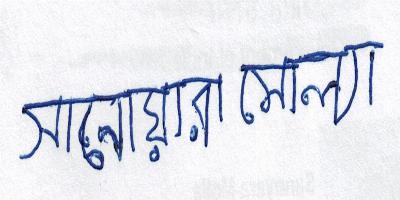 সানোয়ারা মোল্যা